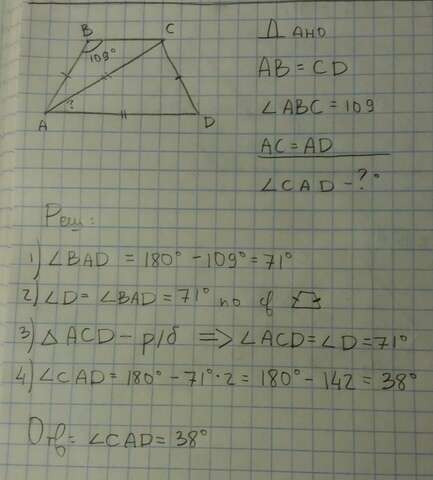 B C
109°
?
A D
Дано
AB = CD
∠ABC = 109
AC = AD
∠CAD - ?°
Реш:
1) ∠BAD = 180° - 109° = 71°
2) ∠D = ∠BAD = 71° по св
3) △ACD - р/б => ∠ACD = ∠D = 71°
4) ∠CAD = 180° - 71°·2 = 180° - 142 = 38°
Отв: ∠CAD = 38°